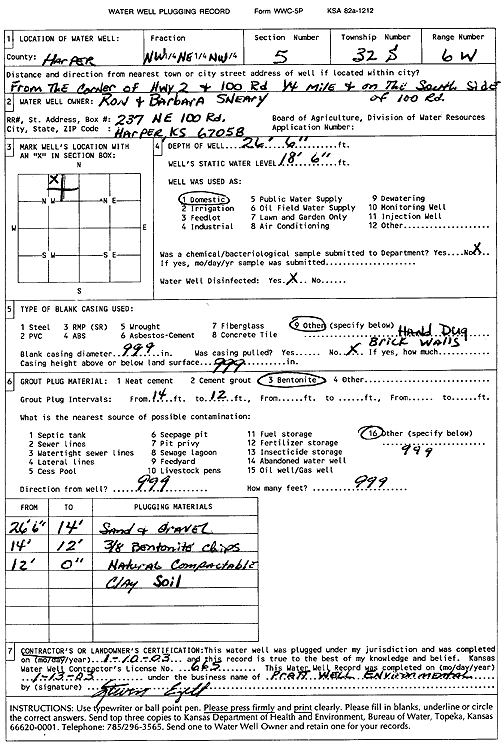 WATER WELL PLUGGING RECORD Form WWC-5P KSA 82a-1212
1 LOCATION OF WATER WELL: Fraction Section Number Township Number Range Number
County: HARPER NW 1/4 NE 1/4 NW 1/4 5 32 S 6 W
Distance and direction from nearest town or city street address of well if located within city?
FROM THE CORNER OF HWY 2 & 100 RD 1/4 MILE & ON THE SOUTH SIDE
OF 100 RD.
2 WATER WELL OWNER: RON & BARBARA SNEARY
RR#, St. Address, Box #: 237 NE 100 RD. Board of Agriculture, Division of Water Resources
City, State, ZIP Code : HARPER, KS 67058 Application Number:
3 MARK WELL'S LOCATION WITH AN "X" IN SECTION BOX:
N
X
N W N E
W E
S W S E
S
4 DEPTH OF WELL....26' 6"....ft.
WELL'S STATIC WATER LEVEL..18' 6"..ft.
WELL WAS USED AS:
1 Domestic 5 Public Water Supply 9 Dewatering
2 Irrigation 6 Oil Field Water Supply 10 Monitoring Well
3 Feedlot 7 Lawn and Garden Only 11 Injection Well
4 Industrial 8 Air Conditioning 12 Other..........
Was a chemical/bacteriological sample submitted to Department? Yes....No X
If yes, mo/day/yr sample was submitted..........
Water Well Disinfected: Yes..X.. No......
5 TYPE OF BLANK CASING USED:
1 Steel 3 RMP (SR) 5 Wrought 7 Fiberglass 9 Other (specify below) HAND DUG
2 PVC 4 ABS 6 Asbestos-Cement 8 Concrete Tile BRICK WALLS
Blank casing diameter..999...in. Was casing pulled? Yes...... No..X. If yes, how much..........
Casing height above or below land surface...999...in.
6 GROUT PLUG MATERIAL: 1 Neat cement 2 Cement grout 3 Bentonite 4 Other..........
Grout Plug Intervals: From..14 ft. to..12 ..ft., From......ft. to...... ft., From...... to......ft.
What is the nearest source of possible contamination:
1 Septic tank 6 Seepage pit 11 Fuel storage 16 Other (specify below)
2 Sewer lines 7 Pit privy 12 Fertilizer storage 999
3 Watertight sewer lines 8 Sewage lagoon 13 Insecticide storage
4 Lateral lines 9 Feedyard 14 Abandoned water well
5 Cess Pool 10 Livestock pens 15 Oil well/Gas well
Direction from well?.....999..... How many feet?.....999.....
FROM TO PLUGGING MATERIALS
26'6" 14' SAND & GRAVEL
14' 12' 3/8 BENTONITE CHIPS
12' 0" NATURAL COMPACTABLE
CLAY SOIL
7 CONTRACTOR'S OR LANDOWNER'S CERTIFICATION: This water well was plugged under my jurisdiction and was completed
on (mo/day/year)...1-10-03....and this record is true to the best of my knowledge and belief. Kansas
Water Well Contractor's License No. This Water Well Record was completed on (mo/day/year)
..1-13-03.... under the business name of PRATT WELL ENVIRONMENTAL
by (signature)
INSTRUCTIONS: Use typewriter or ball point pen. Please press firmly and print clearly. Please fill in blanks, underline or circle
the correct answers. Send top three copies to Kansas Department of Health and Environment, Bureau of Water, Topeka, Kansas
66620-0001. Telephone: 785/296-3565. Send one to Water Well Owner and retain one for your records.